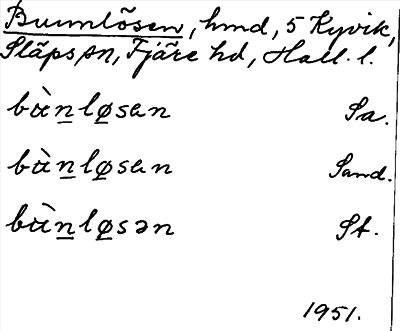 Buumlõsen, hmd, 5 Kyvik,
Släps sn, Fjäre hd, Hall. l.
bù̀n̲lø̲sen Sa.
bù̀n̲lø̲sen Sand.
bù̀n̲lø̲sən St.
1951.